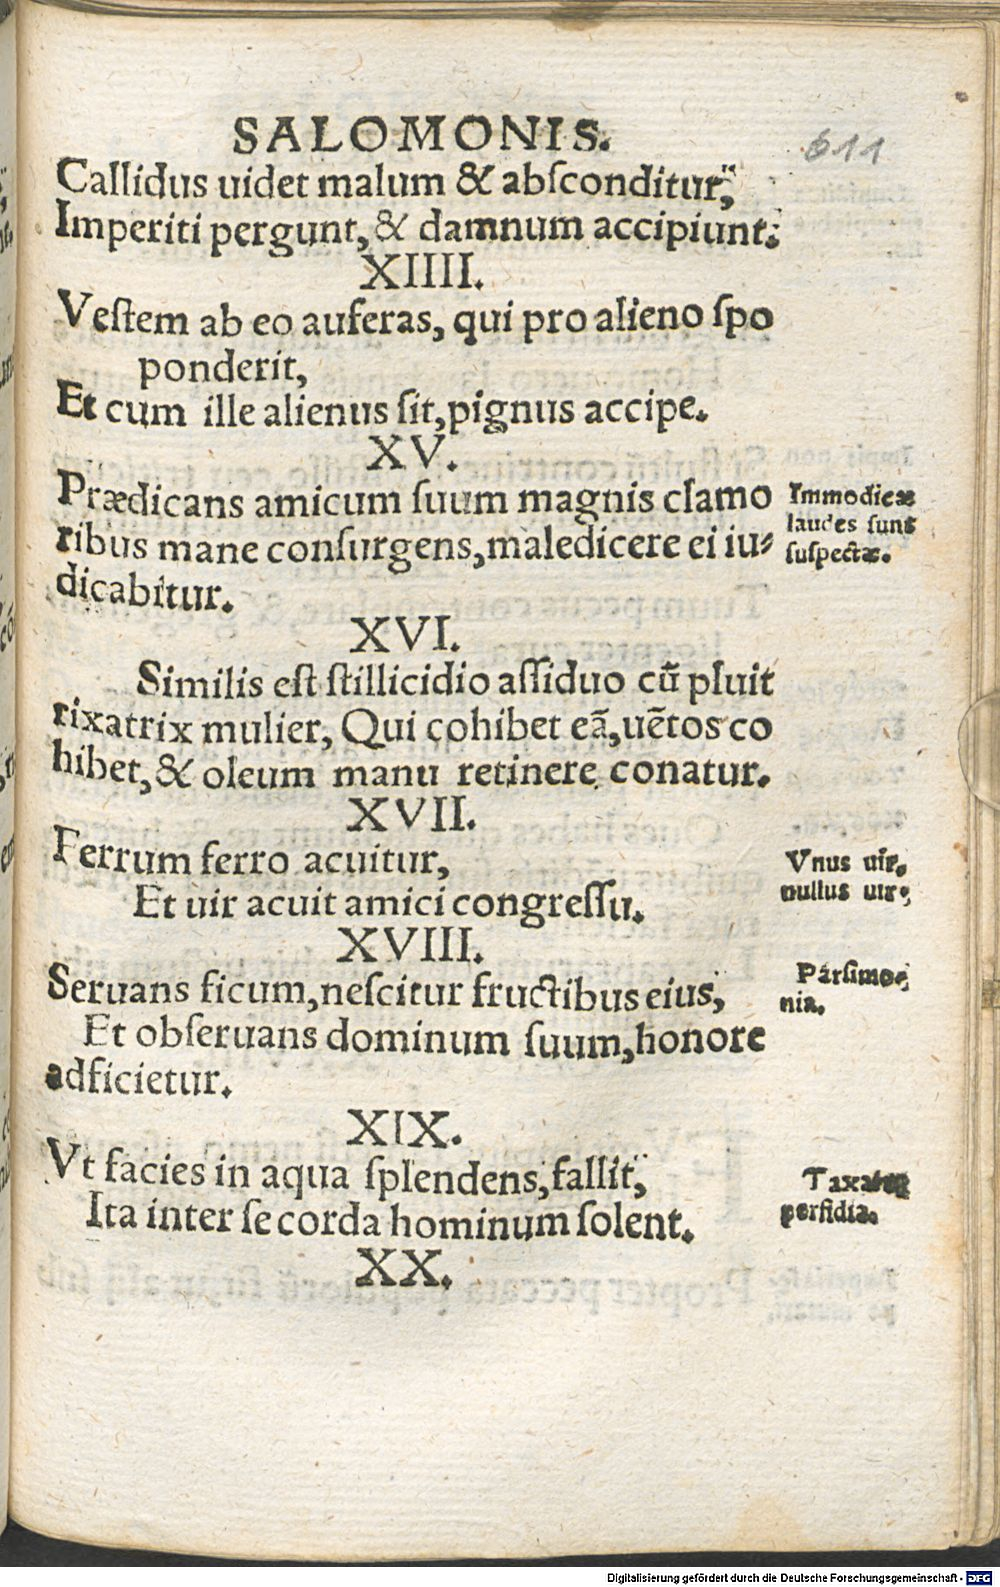 SALOMONIS.
611
Callidus uidet malum & abſconditur,
Imperiti pergunt, & damnum accipiunt.
XIIII.
Veſtem ab eo auferas, qui pro alieno ſpo
ponderit,
Et cum ille alienus ſit, pignus accipe.
XV.
Prædicans amicum ſuum magnis clamo
ribus mane conſurgens, maledicere ei iu-
dicabitur.
Immodicæ
laudes ſunt
ſuſpectæ.
XVI.
Similis eſt ſtillicidio aſſiduo cũ pluit
rixatrix mulier, Qui cohibet eã, uẽtos co
hibet, & oleum manu retinere conatur.
XVII.
Ferrum ferro acuitur,
Et uir acuit amici congreſſu.
Vnus uir,
nullus uir.
XVIII.
Seruans ficum, neſcitur fructibus eius,
Et obſeruans dominum ſuum, honore
adficietur.
Parſimo-
nia.
XIX.
Vt facies in aqua ſplendens, fallit,
Ita inter ſe corda hominum ſolent.
perfidia.
XX.
Digitalisierung gefördert durch die Deutsche Forschungsgemeinschaft - DFG